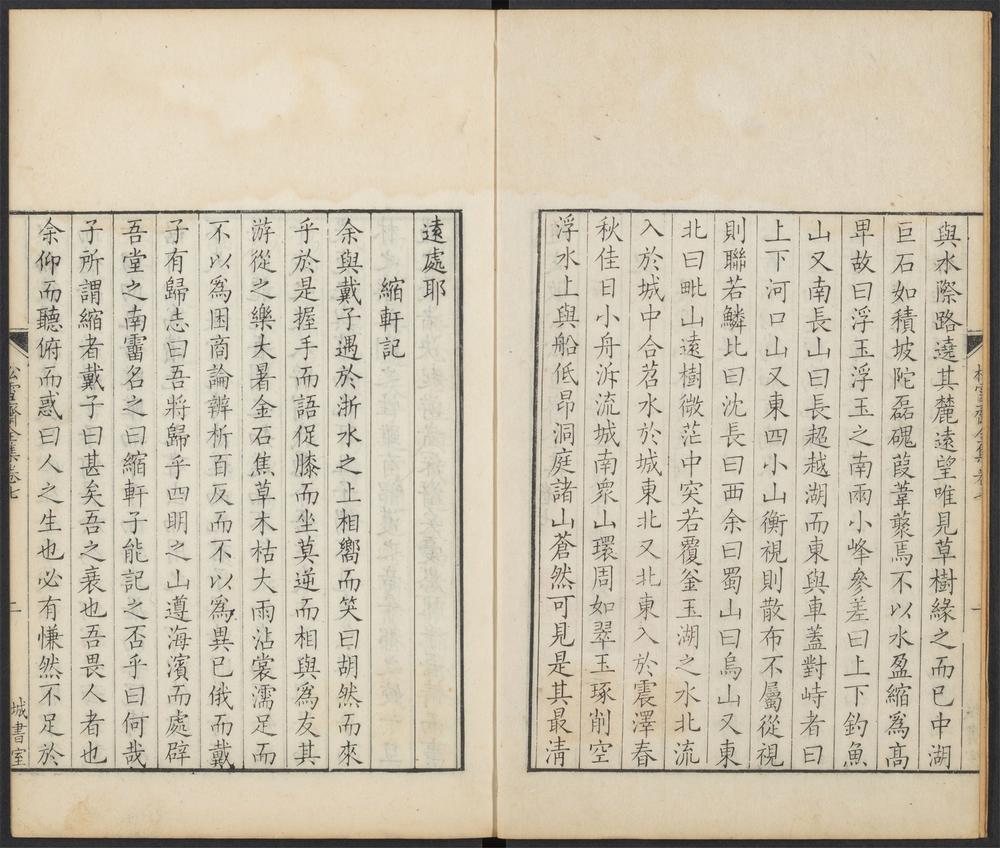 與水際路遶其麓遠望唯見草樹緣之而已中湖
巨石如積坡陀磊磈葭葦藂焉不以水盈縮爲高
卑故曰浮玉浮玉之南兩小峰參差曰上下釣魚
山又南長山曰長超越湖而東與車蓋對峙者曰
上下河口山又東四小山衡視則散布不屬從視
則聯若鱗比曰沈長曰西余曰蜀山曰烏山又東
北曰毗山遠樹微茫中突若覆釜玉湖之水北流
入於城中合苕水於城東北又北東入於震澤春
秋佳日小舟泝流城南衆山環周如翠玉琢削空
浮水上與船低昂洞庭諸山蒼然可見是其最清
遠處耶
縮軒記
余與戴子遇於浙水之上相嚮而笑曰胡然而來
乎於是握手而語促膝而坐莫逆而相與爲友其
游從之樂大暑金石焦草木枯大雨沾裳濡足而
不以爲困商論辨析百反而不以爲異已俄而戴
子有歸志曰吾將歸乎四明之山遵海濱而處辟
吾堂之南霤名之曰縮軒子能記之否乎曰何哉
子所謂縮者戴子曰甚矣吾之衰也吾畏人者也
余仰而聽俯而惑曰人之生也必有慊然不足於
松雪齋全集卷七
二
城書室